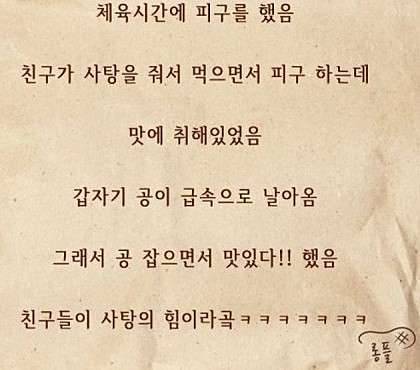 체육시간에 피구를 했음
친구가 사탕을 줘서 먹으면서 피구 하는데
맛에 취해있었음
갑자기 공이 급속으로 날아옴
그래서 공 잡으면서 맛있다!! 했음
친구들이 사탕의 힘이라곸ㅋㅋㅋㅋㅋㅋㅋ
롱플